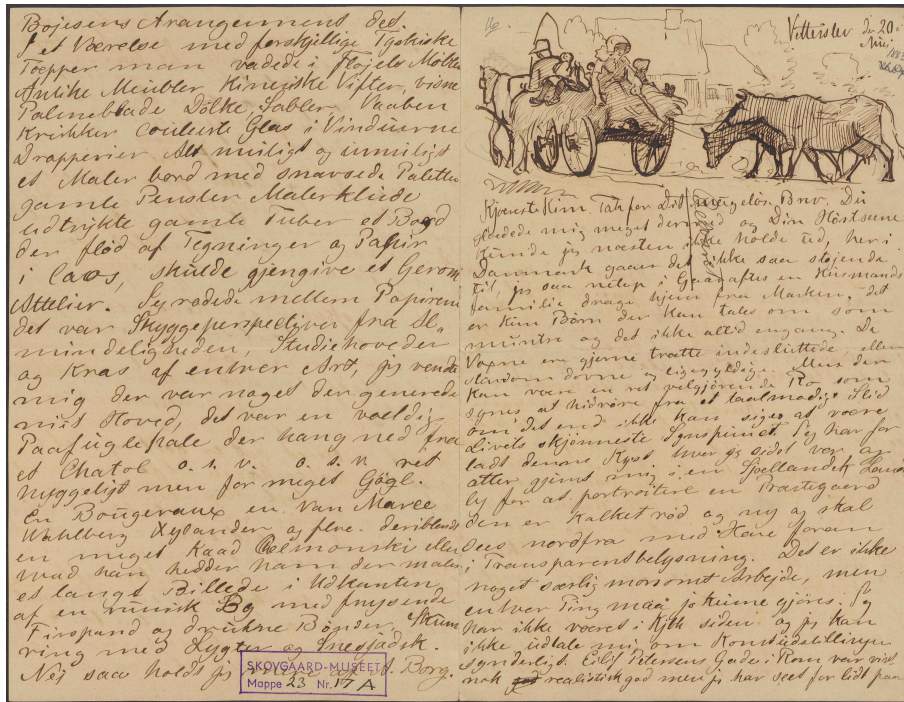 Bojesens Arangement des.
I et Værelse med forskjellige Tyrkiske
Tæpper man vadede i Fløjels Møbler
Antike Meubler Kinesiske Vifter, visne
Palmeblade Dolke, Sabler, Vaaben
Krukker Couleurte Glas i Vinduerne
Drapperier Alt muligt og umuligt
et Maler bord med snavsede Paletter
gamle Pensler Malerklude
udtrykte gamle Tuber et Bord
der flød af Tegninger og Papir
i laos, skulde gjengive et Gerom
Attelier. Jeg rodede mellem Papirene
det var Skyggeperspectiver fra Al-
mindeligheden, Studiehoveder
og Kras af enhver Art, jeg vendte
mig der var noget der generede
mit Hoved, det var en vældig
Paafuglehale der hang ned fra
et Chatol o.s.v. o.s.v. ret
hyggeligt men for meget Gøgl.
En Bougeraux en Van Marce
Wahlberg Xylander og flere. deriblandt
en meget Kaad Chelmonski eller
hvad han hedder ham der maler
et langt Billede i Udkanten
af en russisk By med fnysende
Firspand og drukne Bønder,
ring med Lygter og
Nej saa holdt jeg mere af A. Borg.
SKOVGAARD-MUSEET
Mappe 23 Nr. 17 A
16
Vitterslev d. 20
Aug.
1883
Kjæreste Kim. Tak for Dit Brev. Du
glædede mig meget derved og Din Høstscene
kunde jeg næsten ikke holde ud, her i
Danmark gaar det ikke saa støjende
til, jeg saa netop i Gaaraftes en Husmands
familie drage hjem fra Marken, det
er kun Børn der kan tales om som
muntre og det ikke altid engang. De
Voxne ere gjerne trætte indesluttede, eller
stundom dovne og ligegyldige. Men der
kan være en ret velgjørende Ro som
synes at hidrøre fra et taalmodigt Slid
om det end ikke kan siges at være
Livets skjønneste Synspunct Jeg har for
ladt denne Kyst hvor jeg sidst var og
atter gjemt mig i en Sjællandsk Lands
by for at portraitere en Præstegaard
den er kalket rød og ny og skal
sees nordfra med Have foran
i Transparentbelysning. Det er ikke
noget særlig morsomt Arbejde, men
enhver Ting maa jo kunne gjøres. Jeg
har ikke været i Kjbh siden og jeg kan
ikke udtale mig om Konstudstillingen
synderligt. Eilif Petersens Gade i Rom var vist
nok realistisk god men jeg har seet for lidt paa